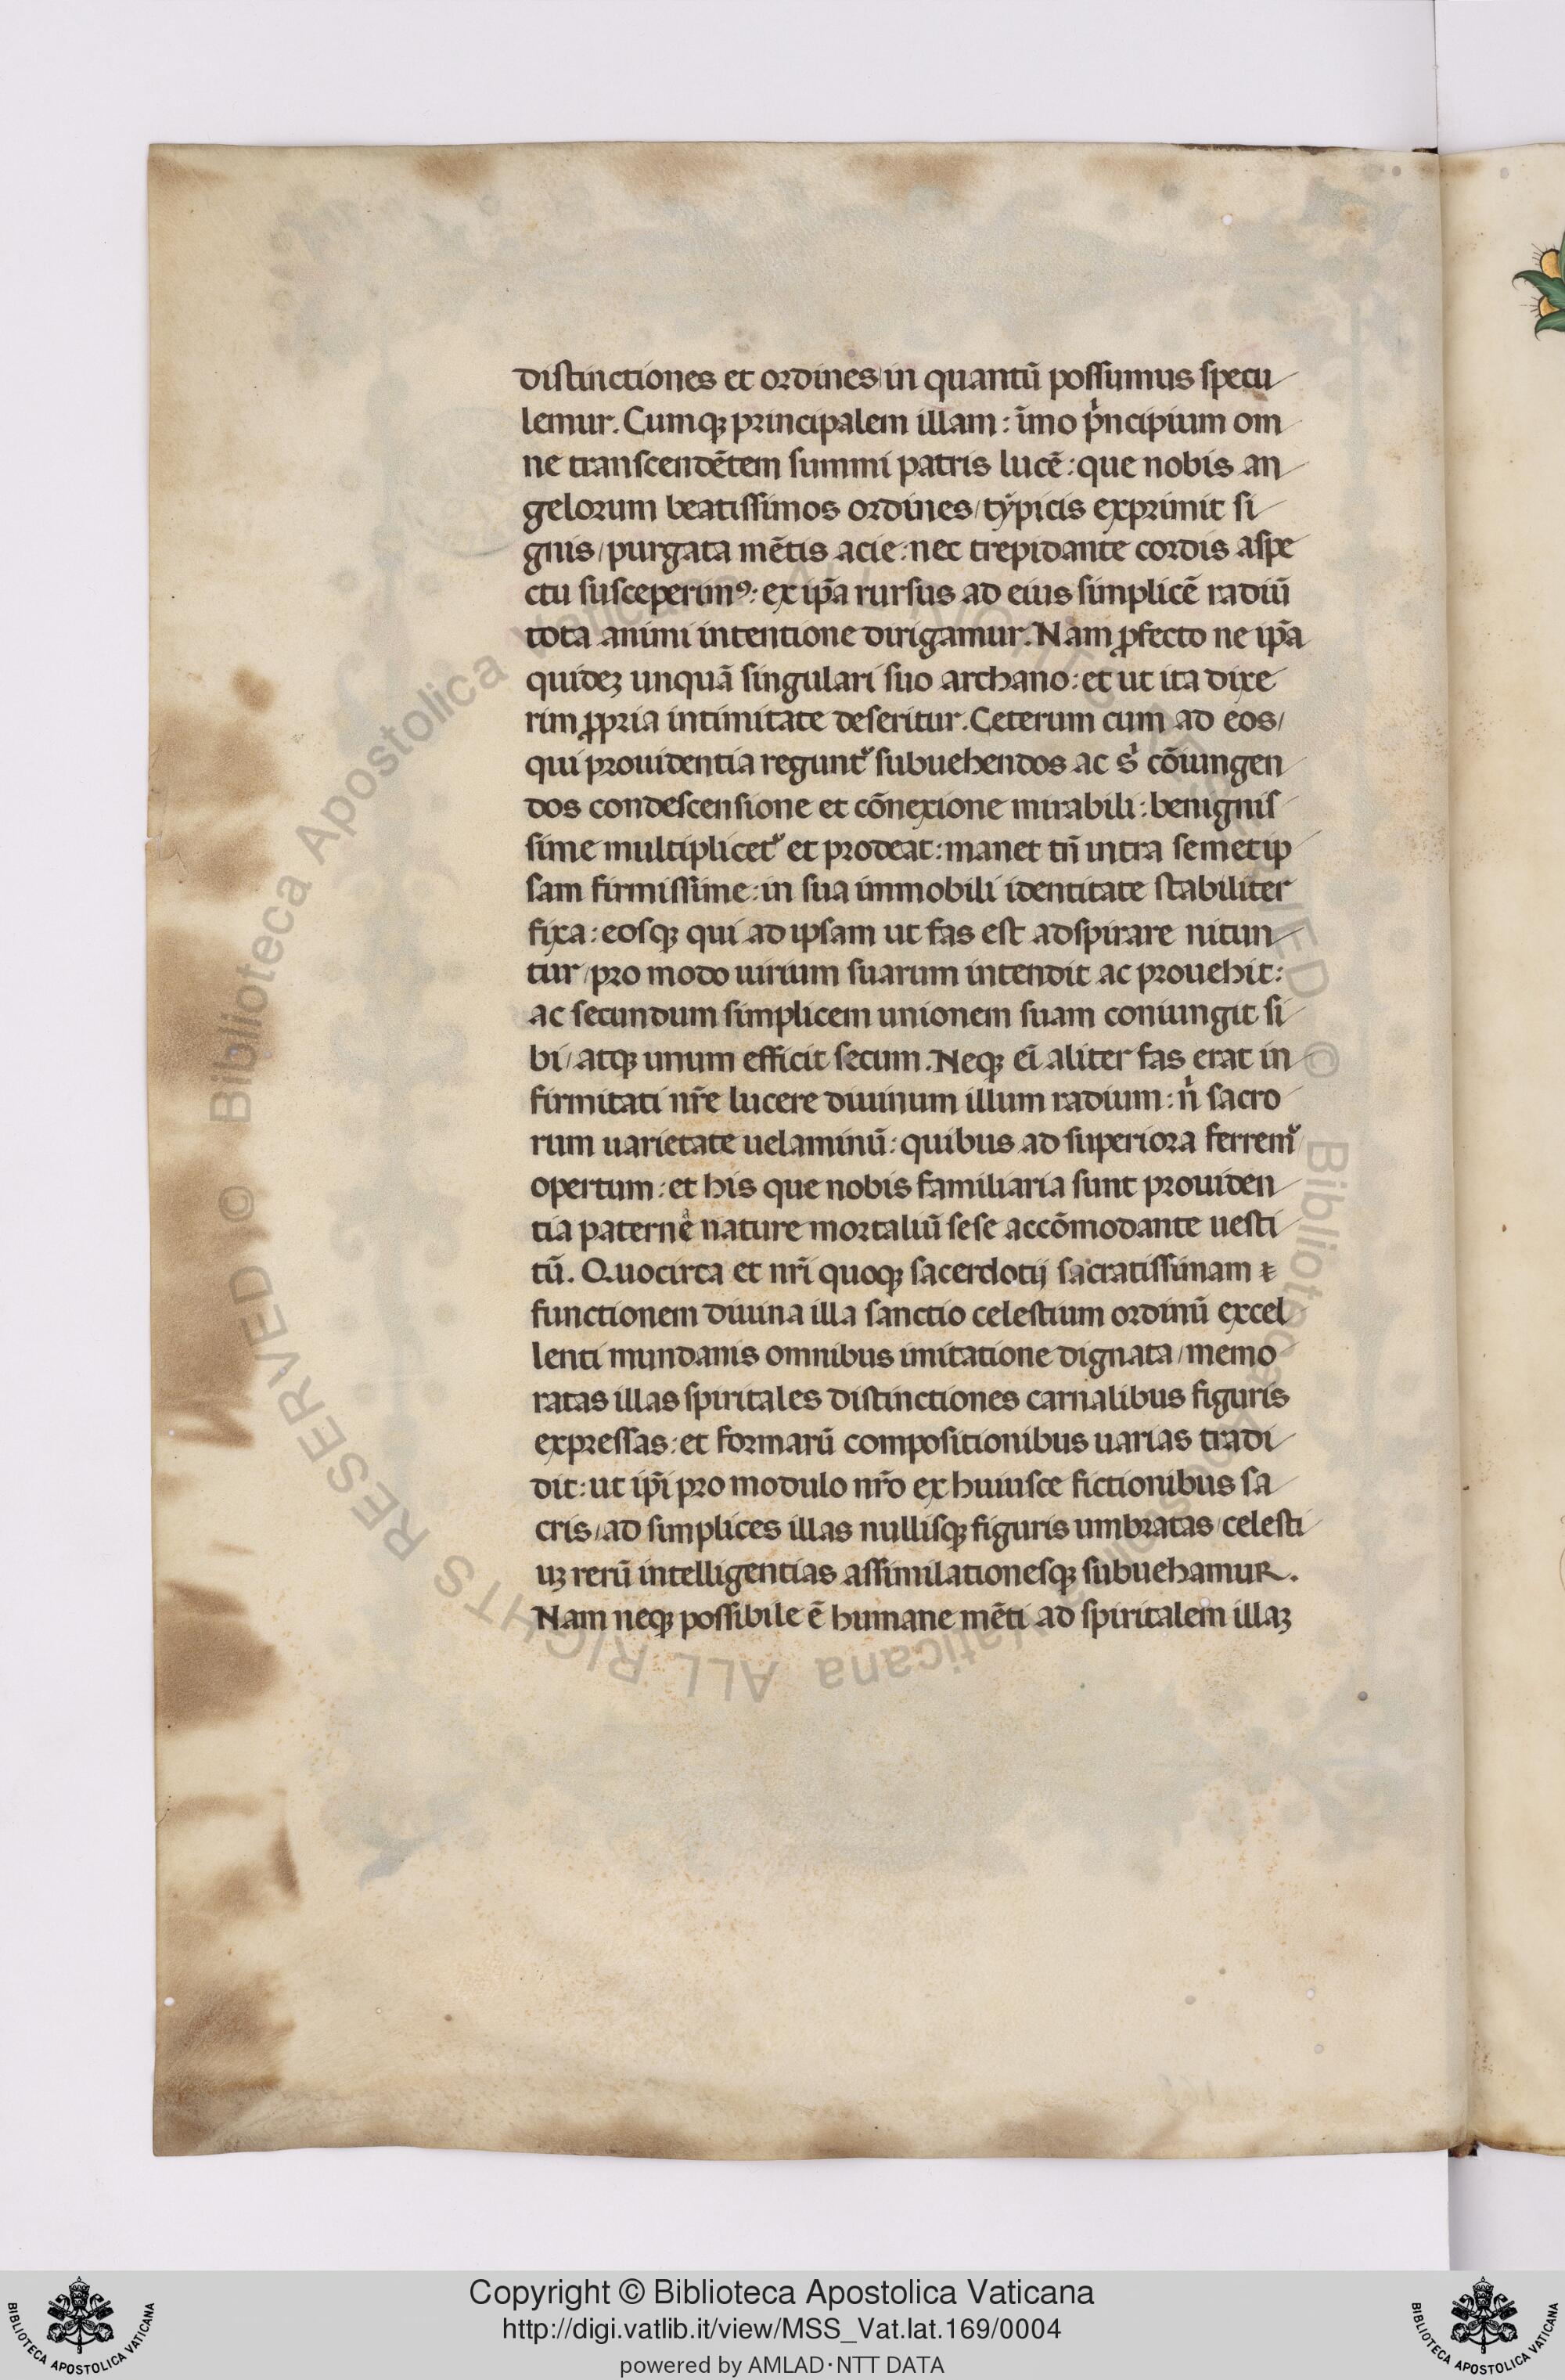 distinctiones et ordines/in quantū possumus specu
lemur. Cumqꝫ principalem illam: īmo pͥncipium om
ne transcendētem summi patris lucē: que nobis an
gelorum beatissimos ordines/tẏpicis exprimit si
gnis/purgata mētis acie: nec trepidante cordis aspe
ctu susceperimꝰ: ex ip̄a rursus ad eius simplicē radiū
tota animi intentione dirigamur. Nam ꝓfecto ne ip̄a
quideꝫ unquā singulari suo archano: et ut ita dixe
rim ꝓpria intimitate deseritur. Ceterum cum ad eos/
qui prouidentia regunt᷑ subuehendos ac sͥ cōiungen
dos condescensione et cōnexione mirabili: benignis
sime multiplicet᷑ et prodeat: manet tn̄ intra semetip
sam firmissime: in sua immobili identitate stabiliter
fixa: eosqꝫ qui ad ipsam ut fas est adspirare nitun
tur/pro modo uirium suarum intendit ac prouehit:
ac secundum simplicem unionem suam coniungit si
bi/atqꝫ unum efficit secum. Neqꝫ ei̅ aliter fas erat in
firmitati nr̄e lucere diuinum illum radium: nͥ sacro
rum uarietate uelaminū: quibus ad superiora ferrem᷑
opertum: et his que nobis familiaria sunt prouiden
tia paterne nature mortaliū sese accōmodante uesti
tū. Quocirca et nr̄i quoqꝫ sacerdotij sacratissimam
functionem diuina illa sanctio celestium ordinū excel
lenti mundanis omnibus imitatione dignata/memo
ratas illas spiritales distinctiones carnalibus figuris
expressas: et formarū compositionibus uarias tradi
dit: ut ip̄i pro modulo nr̄o ex huiusce fictionibus sa
cris/ad simplices illas nullisqꝫ figuris umbratas/celesti
uꝫ rerū intelligentias assimilationesqꝫ subuehamur.
Nam neqꝫ possibile ē humane mēti ad spiritalem illaꝫ
© Biblioteca Apostolica Vaticana ALL RIGHTS RESERVED
© Biblioteca Apostolica Vaticana ALL RIGHTS RESERVED
Copyright © Biblioteca Apostolica Vaticana
http://digi.vatlib.it/view/MSS_Vat.lat.169/0004
powered by AMLAD·NTT DATA
BIBLIOTECA APOSTOLICA VATICANA
BIBLIOTECA APOSTOLICA VATICANA